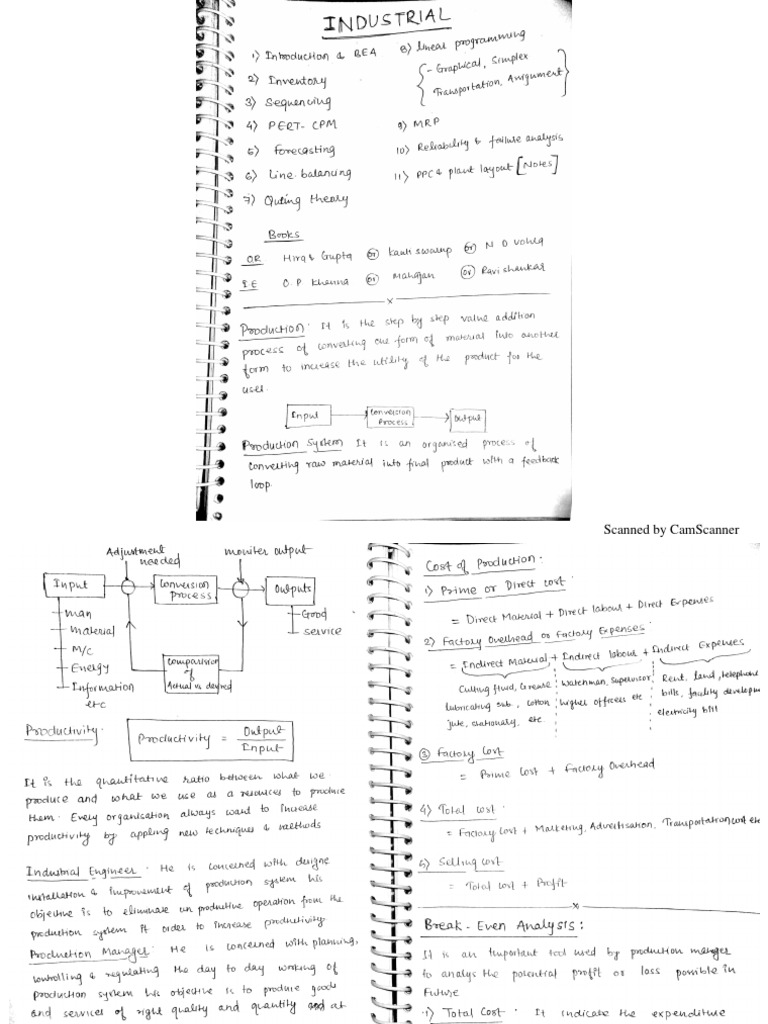 INDUSTRIAL
1) Introduction & BEA
2) Inventory
3) Sequencing
4) PERT-CPM
5) Forecasting
6) Line balancing
7) Quting theory
8) linear programming
- Graphical, Simplex
Transportation, Assignment
9) MRP
10) Reliability & failure analysis
11) PPC & plant layout [Notes]
Books
OR Hira & Gupta or Kanti swarup or N D vohra
I.E O.P Khanna or Mahajan or Ravi shankar
x
Production: It is the step by step value addition
process of converting one form of material into another
form to increase the utility of the product for the
user.
Input Conversion Process Output
Production System It is an organised process of
converting raw material into final product with a feedback
loop.
Scanned by CamScanner
Adjustment needed
moniter output
Input
Conversion Process
Outputs
- man
- material
- M/c
- Energy
- Information
etc
- Good
- service
Comparision of
Actual vs desired
Productivity:
Productivity = Output / Input
It is the quantitative ratio between what we
produce and what we use as a resources to produce
them. Every organisation always want to increase
productivity by applying new techniques & methods
Industrial Engineer: He is concerned with designe
installation & improvement of production system his
objective is to eliminate un productive operation from the
production system it order to increase productivity.
Production Manager: He is concerned with planning,
controlling & regulating the day to day working of
production system his objective is to produce goods
and services of right quality and quantity and at
Cost of Production:
1) Prime or Direct cost:
= Direct Material + Direct labour + Direct Expenses
2) Factory Overhead or Factory Expenses:
= Indirect Material + Indirect labour + Indirect Expenses
Cutting fluid, Grease
lubricating sub, cotton
jute, stationary, etc
watchman, supervisor,
higher officers etc
Rent, land, telephone
bills, facility developm
electricity bill
3) Factory Cost
= Prime Cost + Factory Overhead
4) Total cost:
= Factory Cost + Marketing, Advertisation, Transportation cost etc
5) Selling cost
= Total cost + Profit
x
Break-Even Analysis:
It is an Important tool used by production manager
to analys the potential profit or loss possible in
Future
1) Total Cost: It indicate the expenditure